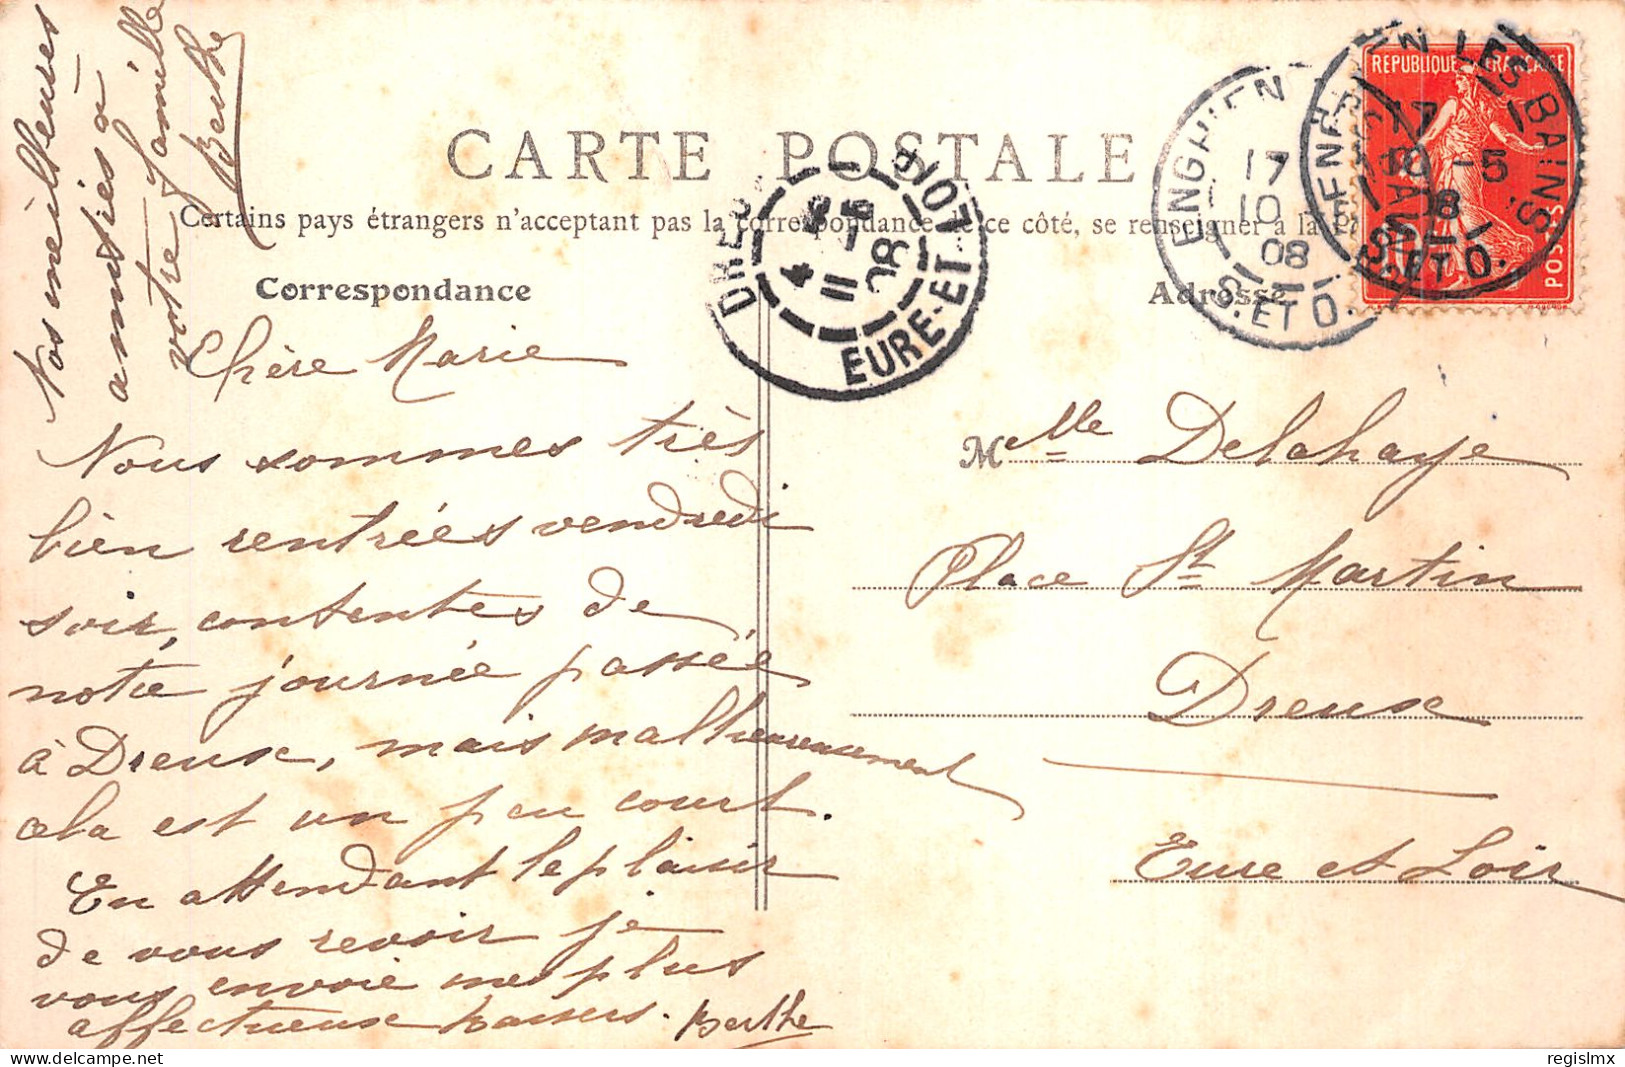 Nos meilleures
amitiés à
votre famille
Berthe
CARTE POSTALE
Certains pays étrangers n'acceptent pas la correspondance de ce côté, se renseigner à la
Correspondance
Adresse
RÉPUBLIQUE FRANÇAISE
POSTES
ENGHIEN
17
10
08
S. ET O.
ENGHIEN LES BAINS
17
10 -5
08
S. ET O.
DREUX
4
11
08
EURE-ET-LOIR
Chère Marie
Nous sommes très
bien rentrées vendredi
soir, contentes de
notre journée passée
à Dreux, mais malheureusement
cela est un peu court.
En attendant le plaisir
de vous revoir je
vous envoie mes plus
affectueux baisers. Berthe
Melle Delahaye
Place St Martin
Dreux
Eure et Loir
regislmx
delcampe.net